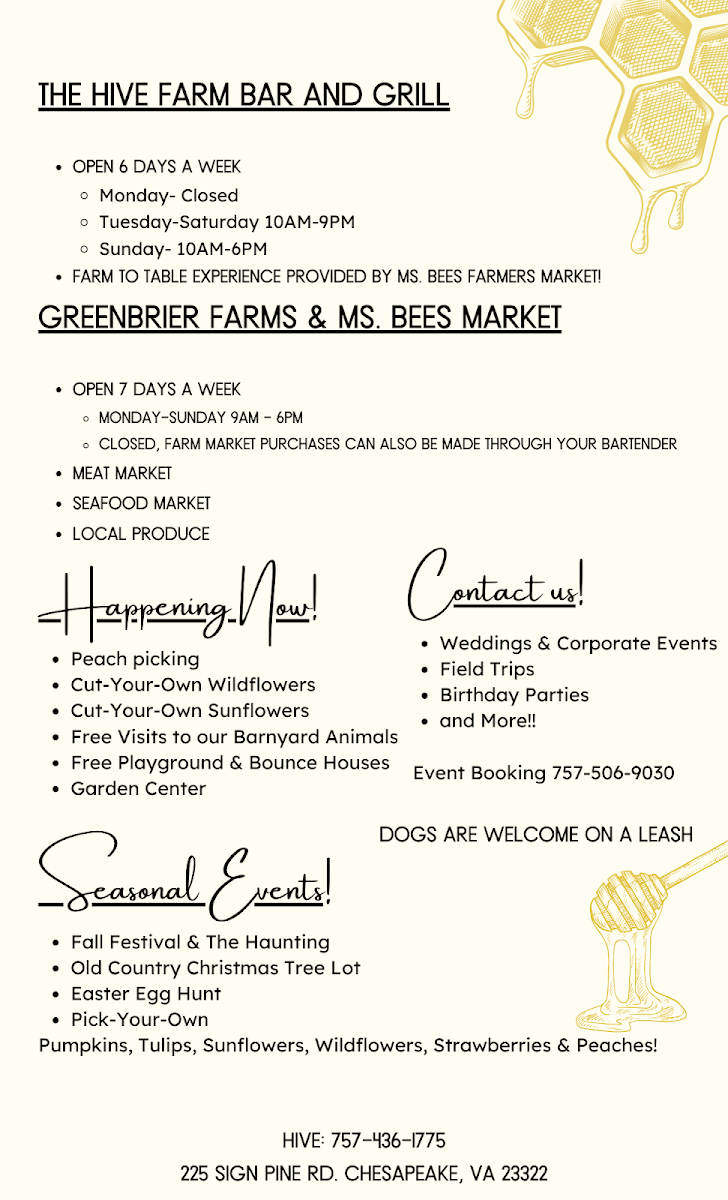 THE HIVE FARM BAR AND GRILL
OPEN 6 DAYS A WEEK
Monday- Closed
Tuesday-Saturday 10AM-9PM
Sunday- 10AM-6PM
FARM TO TABLE EXPERIENCE PROVIDED BY MS. BEES FARMERS MARKET!
GREENBRIER FARMS & MS. BEES MARKET
OPEN 7 DAYS A WEEK
MONDAY-SUNDAY 9AM - 6PM
CLOSED, FARM MARKET PURCHASES CAN ALSO BE MADE THROUGH YOUR BARTENDER
MEAT MARKET
SEAFOOD MARKET
LOCAL PRODUCE
Happening Now!
Peach picking
Cut-Your-Own Wildflowers
Cut-Your-Own Sunflowers
Free Visits to our Barnyard Animals
Free Playground & Bounce Houses
Garden Center
Contact us!
Weddings & Corporate Events
Field Trips
Birthday Parties
and More!!
Event Booking 757-506-9030
DOGS ARE WELCOME ON A LEASH
Seasonal Events!
Fall Festival & The Haunting
Old Country Christmas Tree Lot
Easter Egg Hunt
Pick-Your-Own
Pumpkins, Tulips, Sunflowers, Wildflowers, Strawberries & Peaches!
HIVE: 757-436-1775
225 SIGN PINE RD. CHESAPEAKE, VA 23322